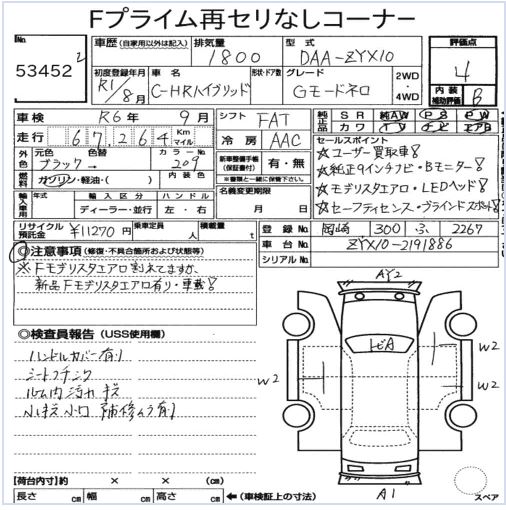 Fプライム再セリなしコーナー
No.
53452
2
車歴 (自家用以外は記入)
排気量
1800
型式
DAA-ZYX10
評価点
4
初度登録年月
R1/8月
車名
C-HRハイブリッド
形状・ドア数
グレード
Gモードネロ
2WD・4WD
内装
補助評価
B
車検
R6年 9月
シフト
FAT
純正品
SR AW PS PW
カワ TV ナビ エアB
走行
67,264 Km マイル
冷房
AAC
セールスポイント
☆ユーザー買取車!
☆純正9インチナビ・Bモニター!
☆モデリスタエアロ・LEDヘッド!
☆セーフティセンス・ブラインドスポット!
外色
元色
色替
カラーNo.
ブラック
209
新車整備手帳(保証書付)
有・無
燃料
ガソリン・軽油・( )
内装色
名義変更期限
月 日
輸入車用
年式
輸入区分
ハンドル
ディーラー・並行
左・右
リサイクル預託金
¥11270円
乗車定員
人
積載量
t
登録No.
岡崎 300 ふ 2267
車台No.
ZYX10-2191886
シリアルNo.
◎注意事項 (修復・不具合箇所および状態等)
※Fモデリスタエアロ割れてますが、
新品Fモデリスタエアロ有り・車載!
◎検査員報告 (USS使用欄)
ハンドルカバー有り
シートコゲ
ルーム内汚れ キズ
小キズ 小凹 補修ムラ有り
AY2
ヒA
W2
W2
W2
A1
スペア
【荷台内寸】約 × ×
長さ cm 幅 cm 高さ cm
←(車検証上の寸法)